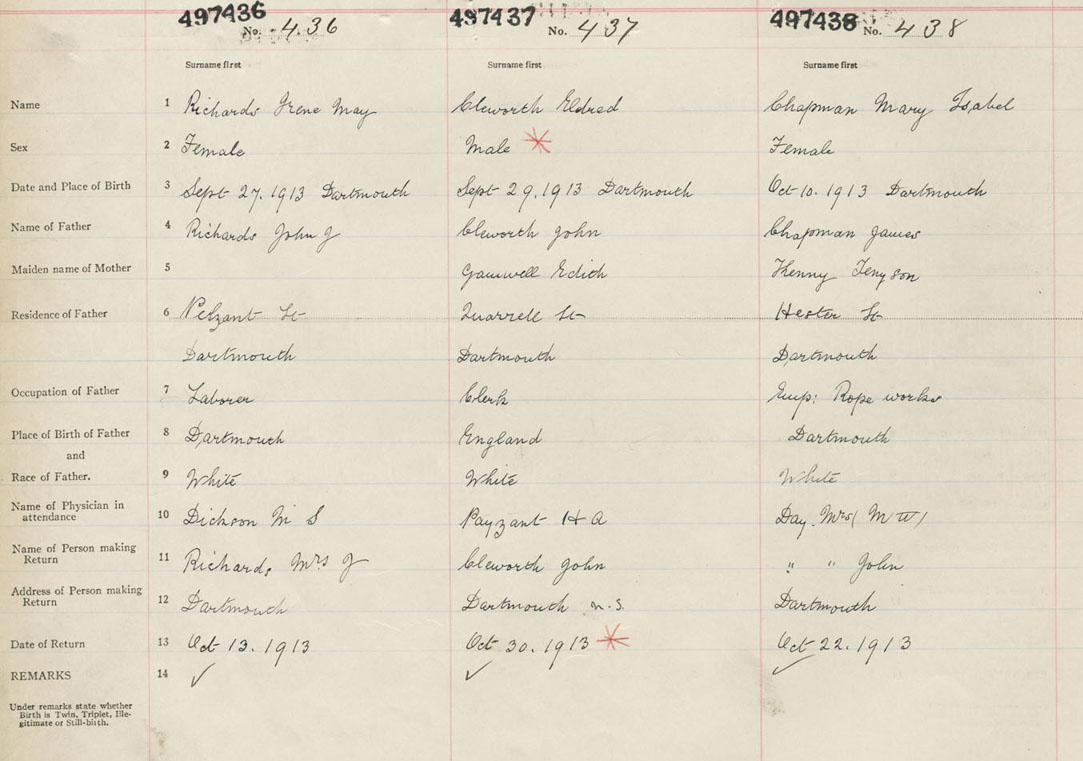 497436 497437 497438
No. 436 No. 437 No. 438
Surname first Surname first Surname first
Name 1 Richards Irene May Cleworth Eldred Chapman Mary Isabel
Sex 2 Female Male Female
Date and Place of Birth 3 Sept 27. 1913 Dartmouth Sept 29. 1913 Dartmouth Oct 10. 1913 Dartmouth
Name of Father 4 Richards John J Cleworth John Chapman James
Maiden name of Mother 5 Gamwell Edith
Residence of Father 6 St Quarrell St Hester St
Dartmouth Dartmouth Dartmouth
Occupation of Father 7 Laborer Clerk Emp: Rope works
Place of Birth of Father 8 Dartmouth England Dartmouth
and
Race of Father. 9 White White White
Name of Physician in
attendance 10 Dickson M S Payzant H A Day. Mrs (M W)
Name of Person making
Return 11 Richards Mrs J Cleworth John " " John
Address of Person making
Return 12 Dartmouth Dartmouth n.s. Dartmouth
Date of Return 13 Oct 13. 1913 Oct 30. 1913 Oct 22. 1913
REMARKS 14 ✓ ✓ ✓
Under remarks state whether
Birth is Twin, Triplet, Ille-
gitimate or Still-birth.